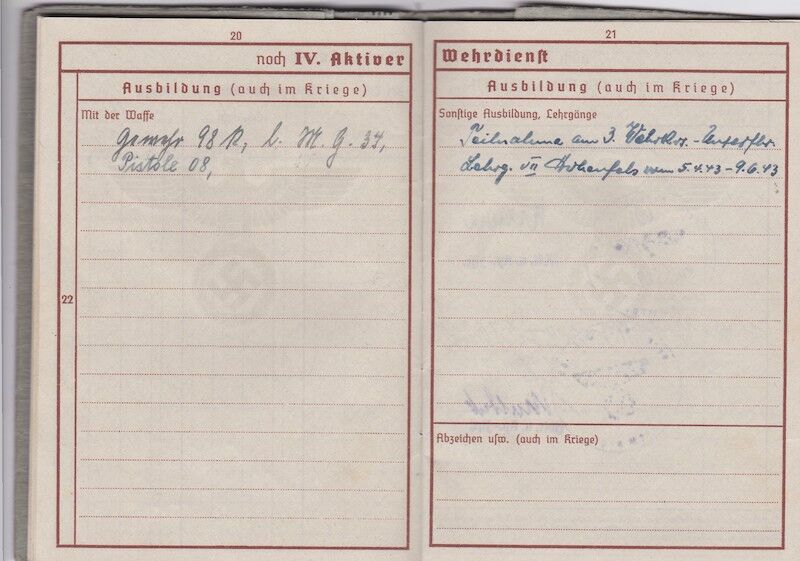 20
noch IV. Aktiver
Ausbildung (auch im Kriege)
Mit der Waffe
Gewehr 98 K, l. M. G. 34,
Pistole 08,
22
21
Wehrdienst
Ausbildung (auch im Kriege)
Sonstige Ausbildung, Lehrgänge
Teilnahme am 3. Wehrkrs.-Unterfhr.
Lehrg. VII Hohenfels vom 5.4.43-9.6.43
Abzeichen usw. (auch im Kriege)